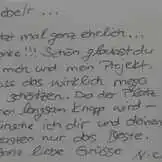 ebe/r ...
tzt mal ganz ehrlich...
nke!!! Schön glaubst du
mich und mein Projekt.
ss das wirklich mega
schätzen. Da der Platz
en langsam knapp wird -
ünsche ich dir und deinen
ur das Beste.
anz liebe Grüsse N